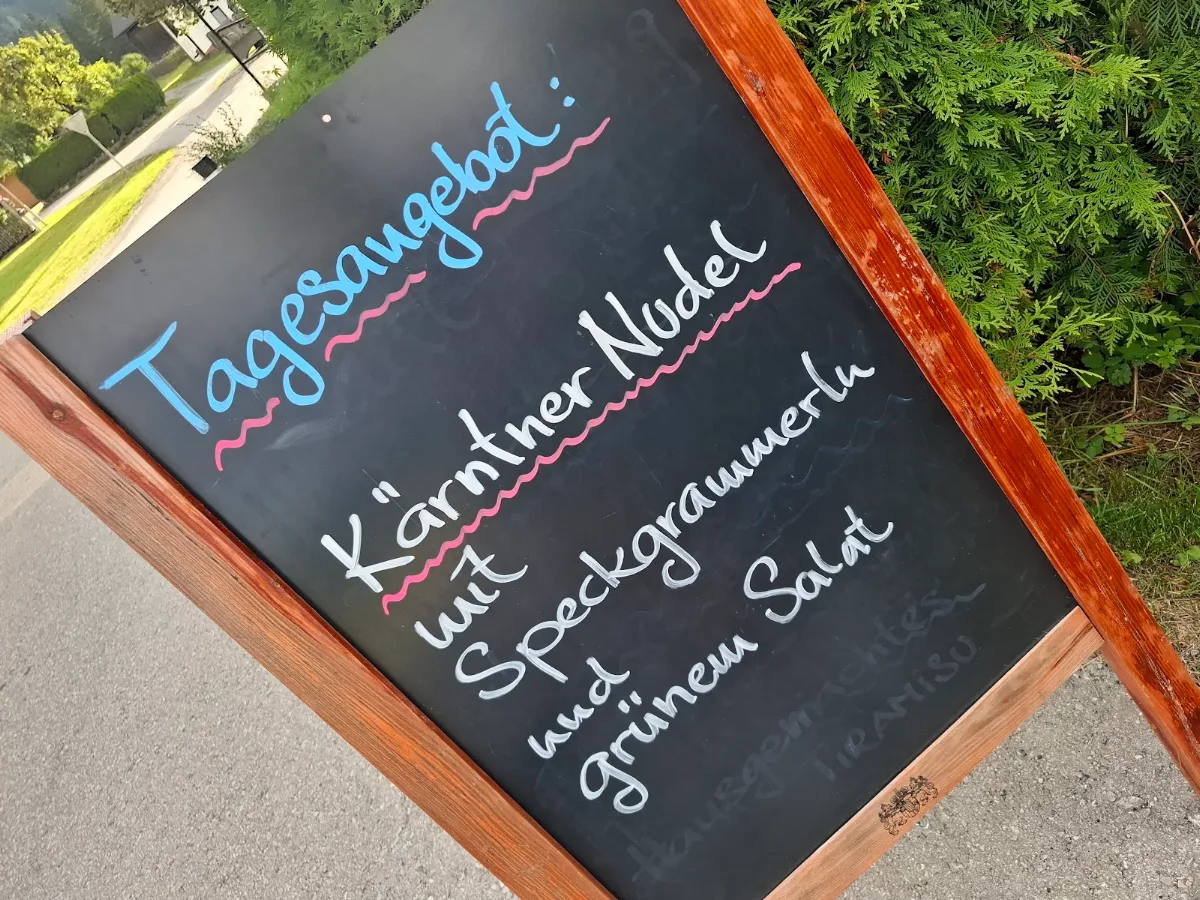 Tagesangebot:
Kärntner Nudel
mit
Speckgrammerln
und
grünem Salat
Hausgemachtes
TIRAMISU